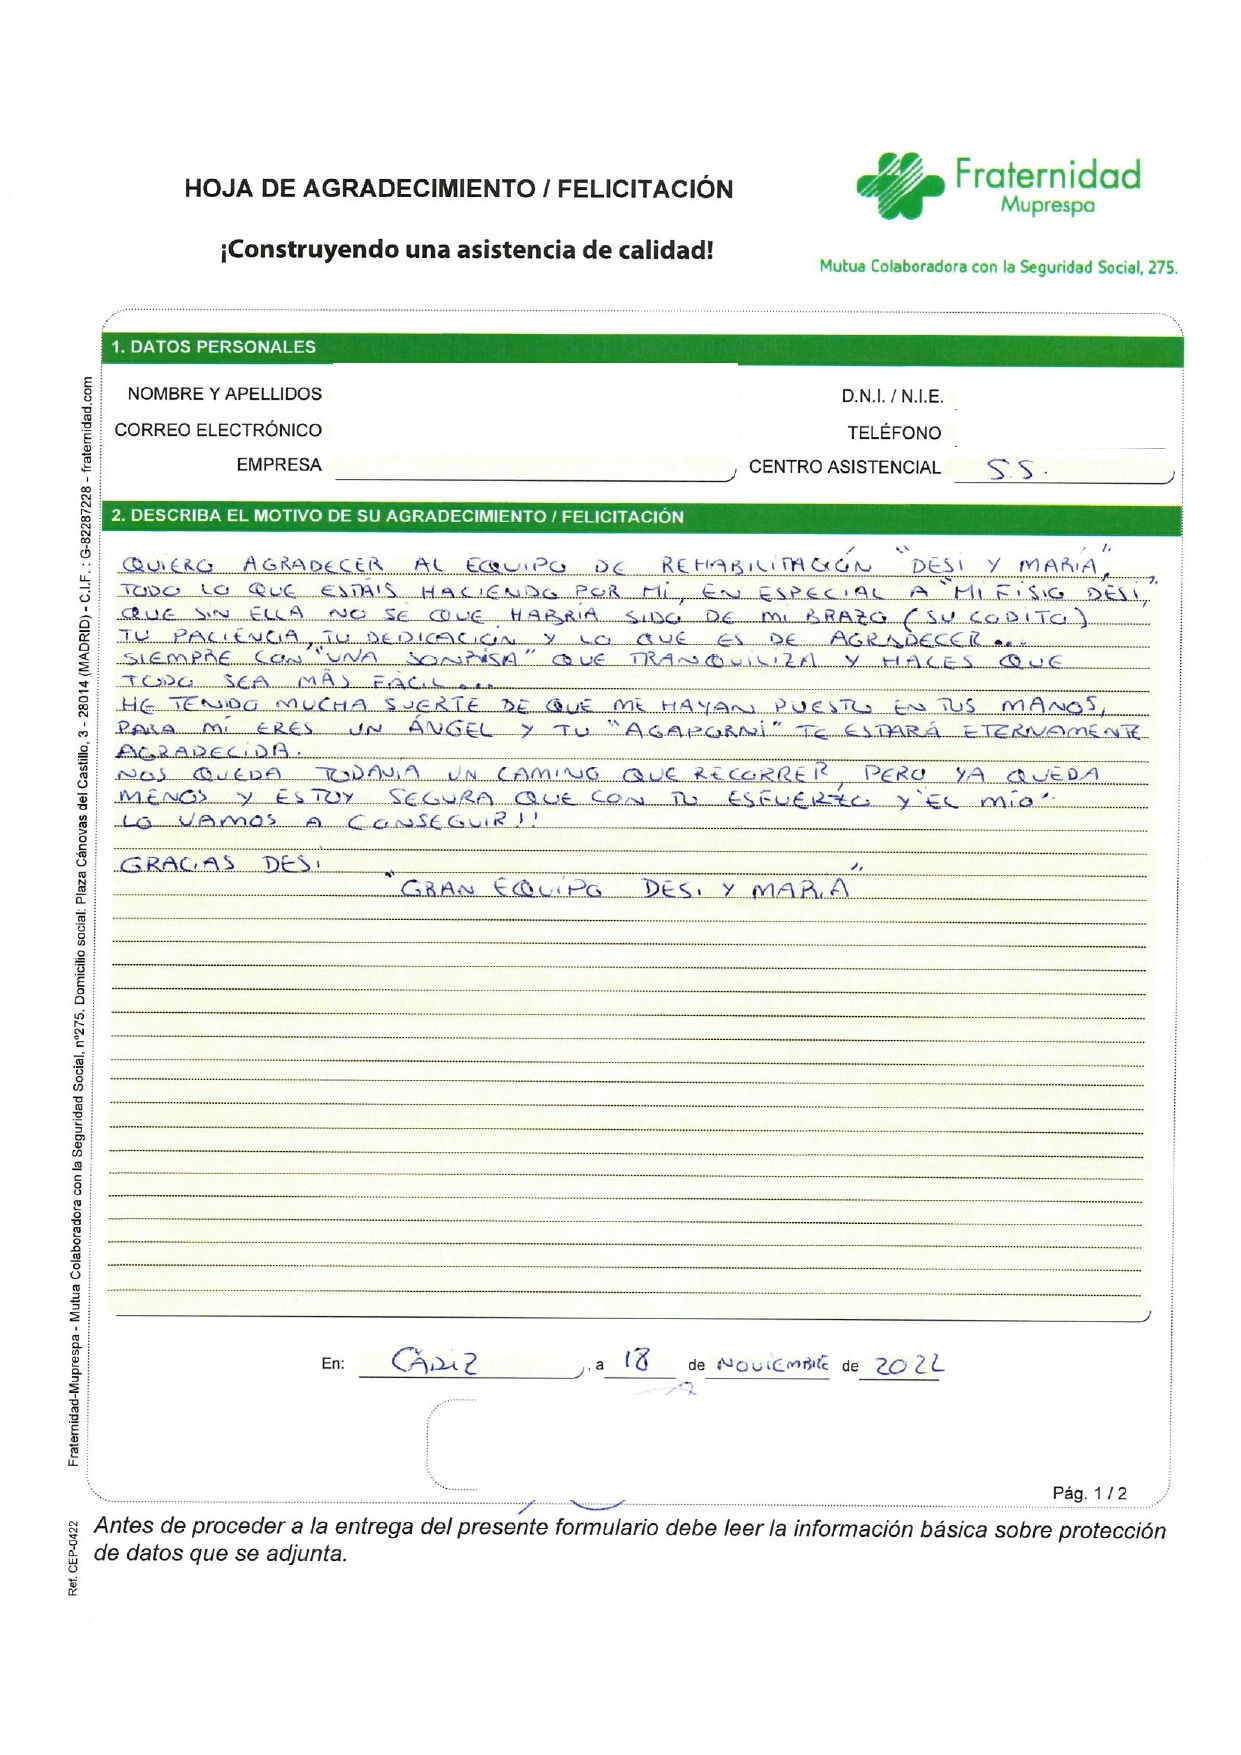 HOJA DE AGRADECIMIENTO / FELICITACIÓN
¡Construyendo una asistencia de calidad!
Fraternidad
Muprespa
Mutua Colaboradora con la Seguridad Social, 275.
1. DATOS PERSONALES
NOMBRE Y APELLIDOS
D.N.I. / N.I.E.
CORREO ELECTRÓNICO
TELÉFONO
EMPRESA
CENTRO ASISTENCIAL S.S.
2. DESCRIBA EL MOTIVO DE SU AGRADECIMIENTO / FELICITACIÓN
QUIERO AGRADECER AL EQUIPO DE REHABILITACIÓN "DESI Y MARÍA",
TODO LO QUE ESTÁIS HACIENDO POR MÍ, EN ESPECIAL A "MI FISIO DESI",
QUE SIN ELLA NO SE QUE HABRÍA SIDO DE MI BRAZO (SU CODITO)
TU PACIENCIA, TU DEDICACIÓN Y LO QUE ES DE AGRADECER...
SIEMPRE CON "UNA SONRISA" QUE TRANQUILIZA Y HACES QUE
TODO SEA MÁS FÁCIL...
HE TENIDO MUCHA SUERTE DE QUE ME HAYAN PUESTO EN TUS MANOS,
PARA MÍ ERES UN ÁNGEL Y TU "AGAPORNI" TE ESTARÁ ETERNAMENTE
AGRADECIDA.
NOS QUEDA TODAVIA UN CAMINO QUE RECORRER, PERO YA QUEDA
MENOS Y ESTOY SEGURA QUE CON TU ESFUERZO Y "EL MÍO"
LO VAMOS A CONSEGUIR!!
GRACIAS DESI
"GRAN EQUIPO DESI Y MARIA"
En: CÁDIZ, a 18 de NOVIEMBRE de 2022
Pág. 1 / 2
Antes de proceder a la entrega del presente formulario debe leer la información básica sobre protección
de datos que se adjunta.
Fraternidad-Muprespa - Mutua Colaboradora con la Seguridad Social, nº275. Domicilio social: Plaza Cánovas del Castillo, 3 - 28014 (MADRID) - C.I.F. : G-82287228 - fraternidad.com
Ref. CEP-0422